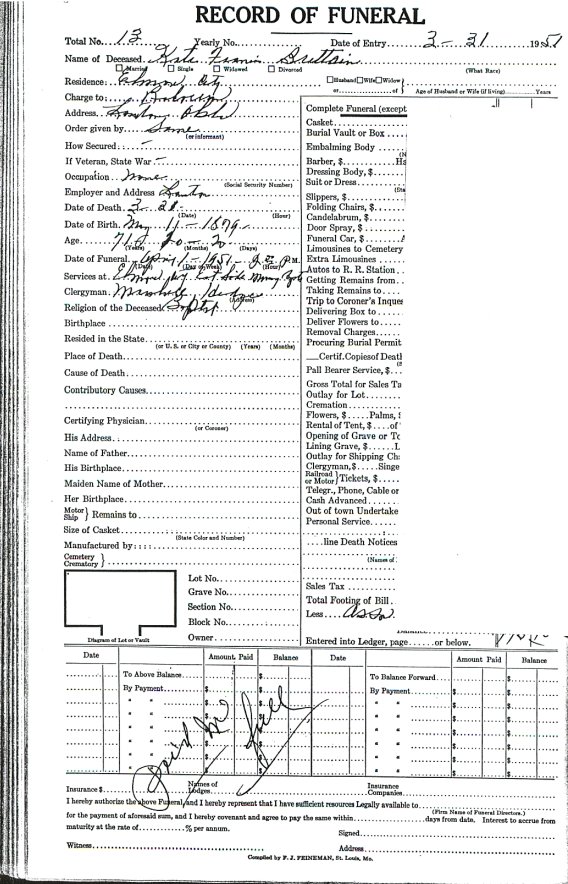 RECORD OF FUNERAL
Total No. 13 Yearly No. Date of Entry 3-31 1951
Name of Deceased Kate Francis Brittain
Married Single Widowed Divorced (What Race)
Residence: Elmore City Husband Wife Widow
or of Age of Husband or Wife (if living) Years
Charge to
Address
Order given by Same
(or informant)
How Secured -
If Veteran, State War -
Occupation None
(Social Security Number)
Employer and Address
Date of Death 3-
(Date) (Hour)
Date of Birth May 11-1879
Age 71 10 20
(Years) (Months) (Days)
Date of Funeral April 1-1951- P.M.
(Date) (Day of Week) (Hour)
Services at
Clergyman
(Address)
Religion of the Deceased Baptist
Birthplace
Resided in the State
(or U. S. or City or County) (Years) (Months)
Place of Death
Cause of Death
Contributory Causes
Certifying Physician
(or Coroner)
His Address
Name of Father
His Birthplace
Maiden Name of Mother
Her Birthplace
Motor
Ship Remains to
Size of Casket
(State Color and Number)
Manufactured by : : : :
Cemetery
Crematory
Lot No.
Grave No.
Section No.
Block No.
Owner
Diagram of Lot or Vault
Complete Funeral (except
Casket
Burial Vault or Box
Embalming Body
(N
Barber, $ Ha
Dressing Body, $
Suit or Dress
(Sta
Slippers, $
Folding Chairs, $
Candelabrum, $
Door Spray, $
Funeral Car, $
Limousines to Cemetery
Extra Limousines
Autos to R. R. Station
Getting Remains from
Taking Remains to
Trip to Coroner's Inques
Delivering Box to
Deliver Flowers to
Removal Charges
Procuring Burial Permit
Certif. Copies of Deatl
Pall Bearer Service, $
Gross Total for Sales Ta
Outlay for Lot
Cremation
Flowers, $ Palms,
Rental of Tent, $ of
Opening of Grave or To
Lining Grave, $ L
Outlay for Shipping Ch
Clergyman, $ Singe
Railroad
or Motor Tickets, $
Telegr., Phone, Cable or
Cash Advanced
Out of town Undertake
Personal Service
line Death Notices
(Names of
Sales Tax
Total Footing of Bill
Less Assn.
Entered into Ledger, page or below.
Date Amount Paid Balance Date Amount Paid Balance
To Above Balance $ $ To Balance Forward $ $
By Payment $ $ By Payment $ $
" " $ $ " " $ $
" " $ $ " " $ $
" " $ $ " " $ $
" " $ $ " " $ $
" " $ $ " " $ $
" " $ $ " " $ $
Paid in full
Insurance $ Names of Lodges Insurance Companies
I hereby authorize the above Funeral, and I hereby represent that I have sufficient resources Legally available to
(Firm Name of Funeral Directors.)
for the payment of aforesaid sum, and I hereby covenant and agree to pay the same within days from date. Interest to accrue from
maturity at the rate of % per annum. Signed
Witness Address
Compiled by F. J. FEINEMAN, St. Louis, Mo.